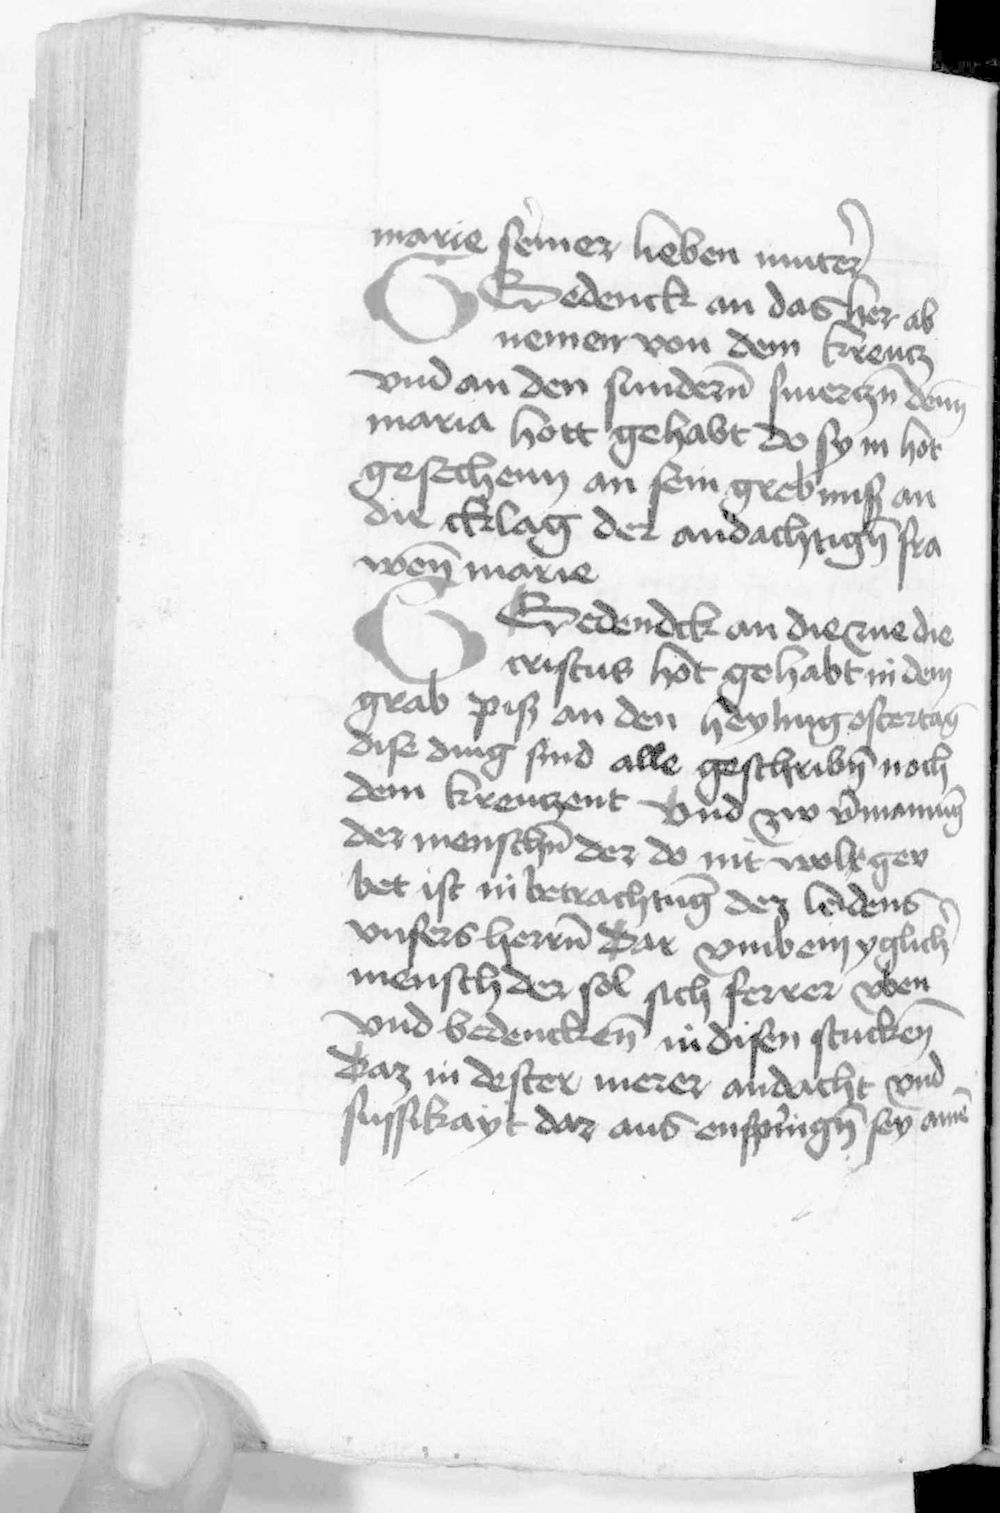 marie seiner lieben muter
GGedenck an das her ab
nemen von dem kreucz
vnd an den sundern̄ smerczn̄ denn
maria hott gehabt do sy in hot
gesechenn an sein grebnuß an
die cklag der andachtign̄ fra
wen̄ marie
GGedendck an die rue die
cristus hot gehabt in dem
grab piß an den heyling ostertag
dise ding sind alle geschribn̄ noch
dem kreuczent Vnd zw v̄manung
der menschn̄ der do nit wolt gev
bet ist in betrachtūg dez leidens
vnsers herrn̄ Dar vmb ein yglich̄
mensch der sol sich ferrer vben
vnd bedencken̄ in disen stucken̄
Daz in dester merer andacht vnd
sussikayt dar aus enspringn̄ sey amē